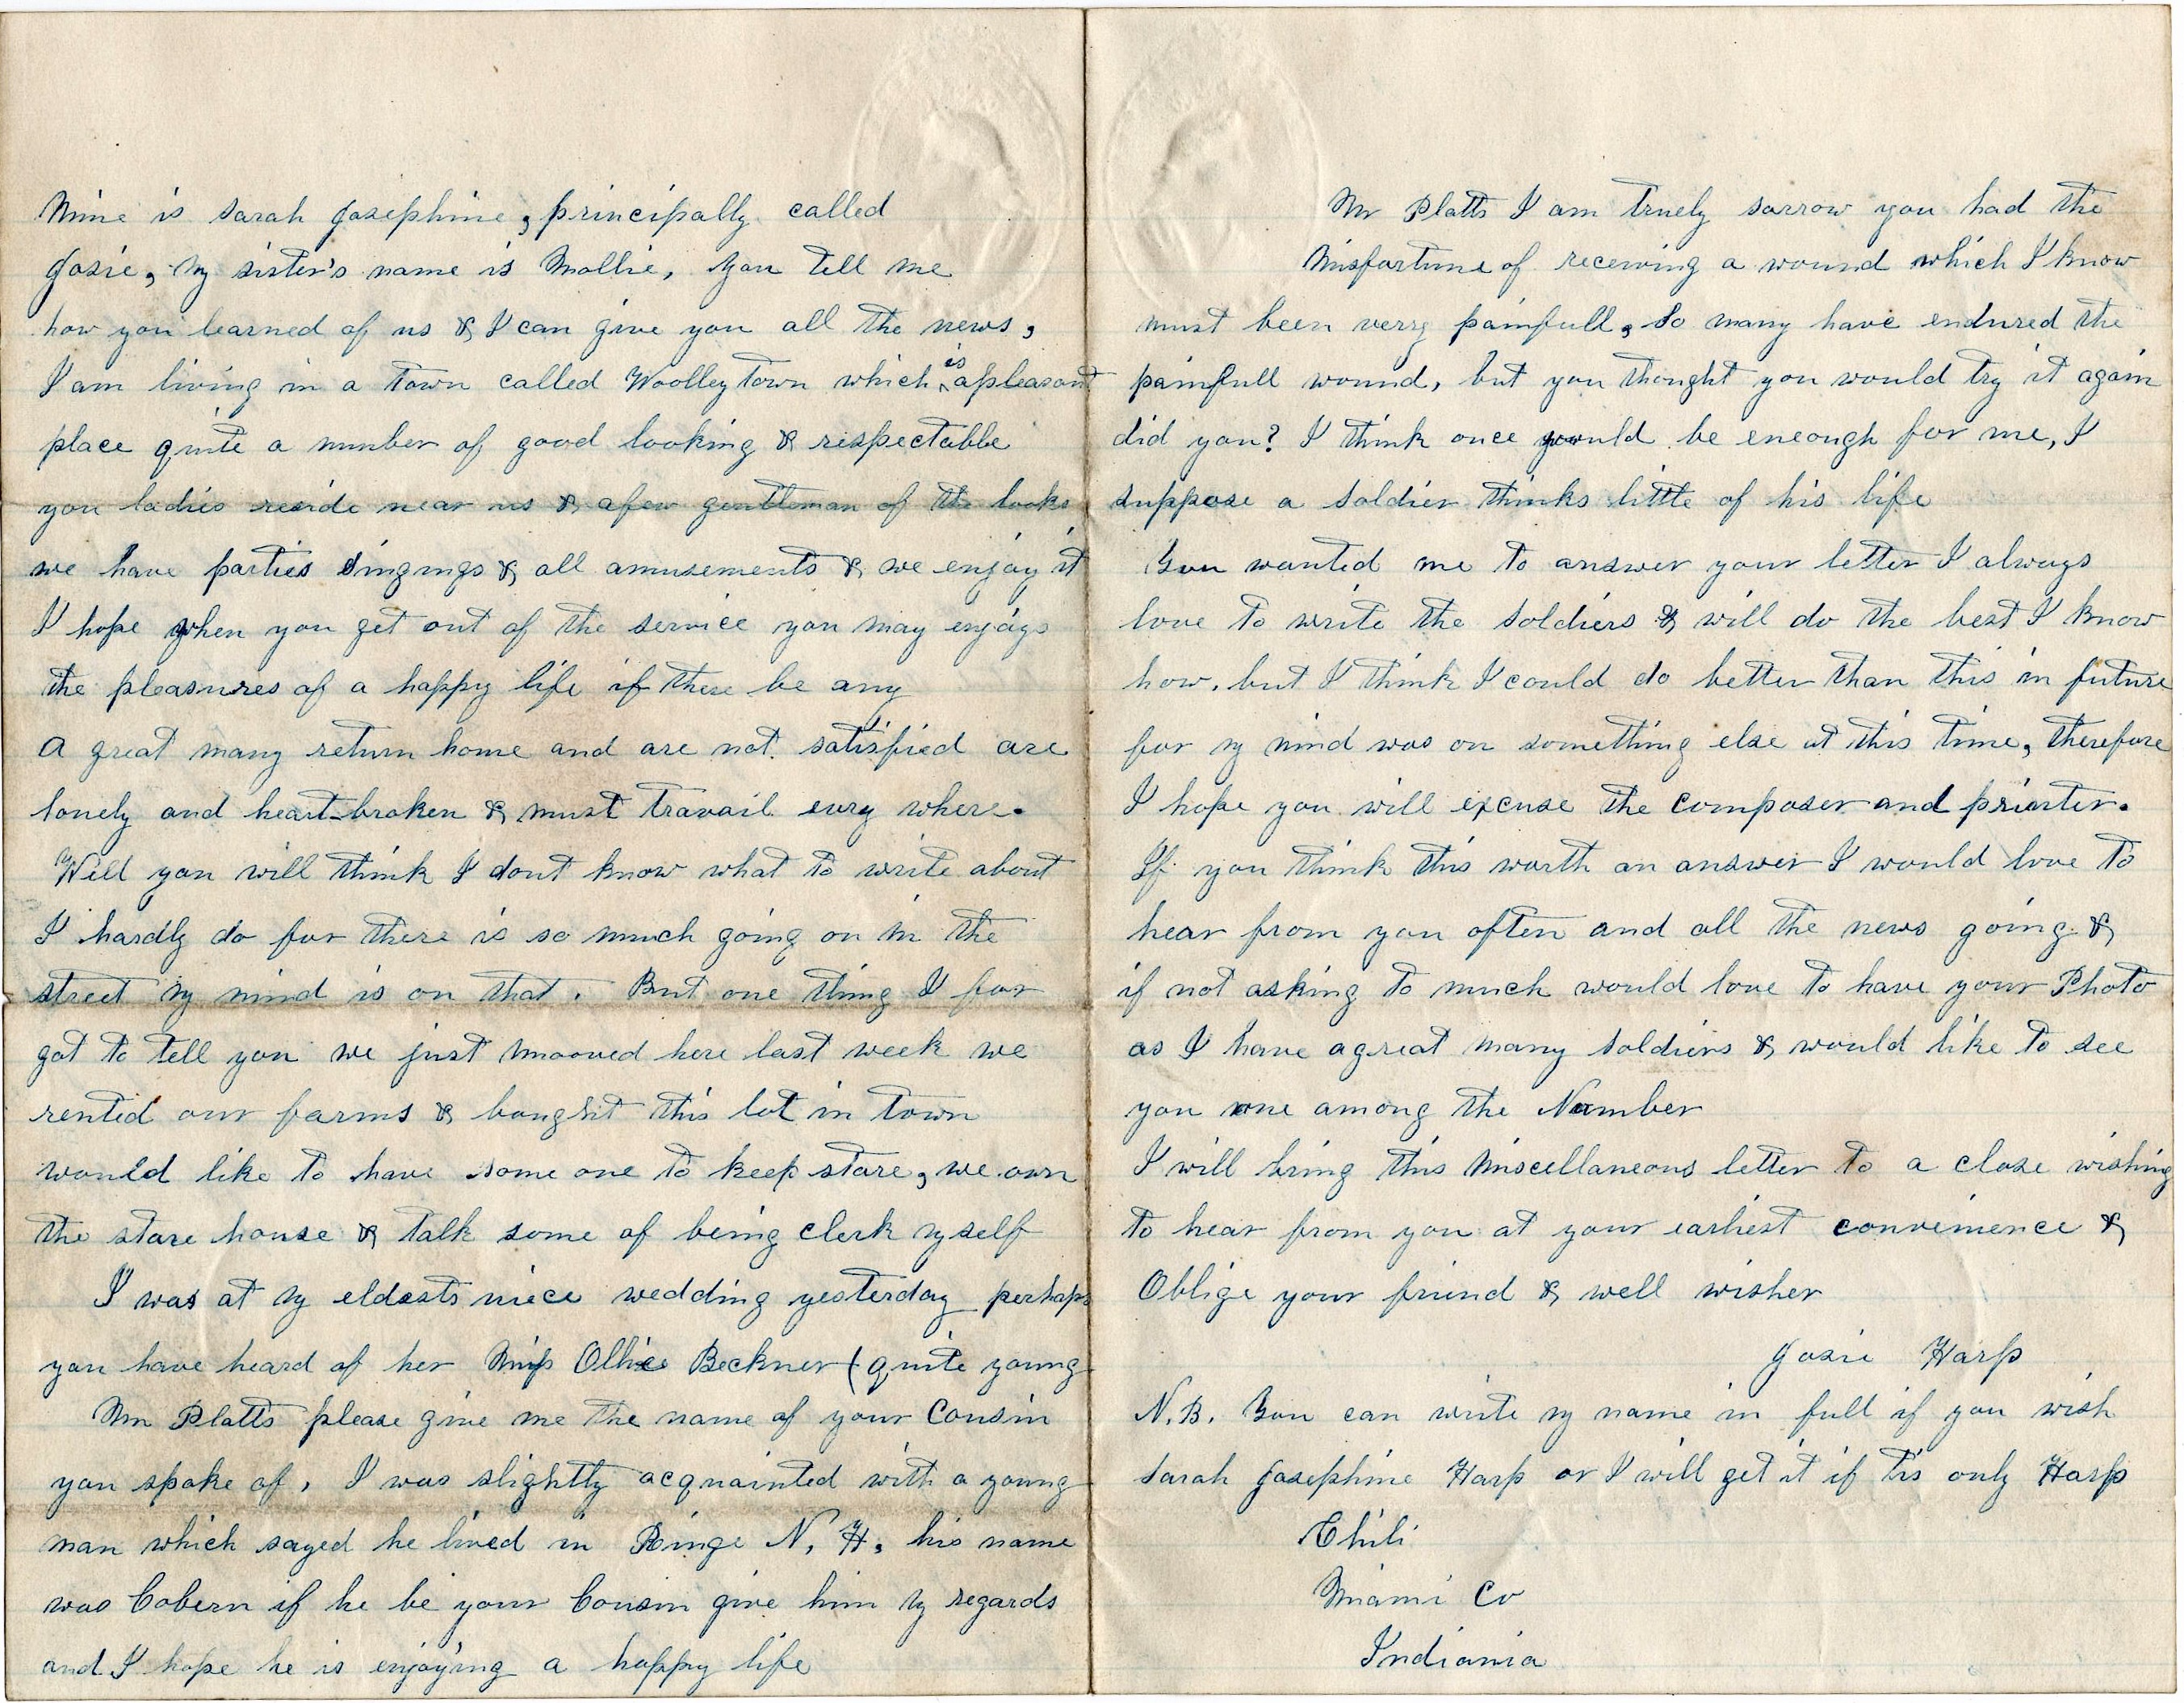 Mine is Sarah Josephine, principally called
Josie, my sister's name is Mollie, you tell me
how you learned of us & I can give you all the news,
I am living in a town called Woolleytown which is apleasant
place quite a number of good looking & respectabbe
you ladies reside near us & afew gentleman of the looks
we have parties singings & all amusements & we enjoy it
I hope when you get out of the service you may enjoys
the pleasures of a happy life if there be any
A great many return home and are not satisfied are
lonely and heart-broken & must travail evry where.
Well you will think I dont know what to write about
I hardly do for there is so much going on in the
street my mind is on that. But one thing I for
got to tell you we just mooved here last week we
rented our farms & bought this lot in town
would like to have some one to keep store, we own
the store house & talk some of being clerk myself
I was at my eldests niece wedding yesterday perhaps
you have heard of her Miss Ollie Beckner (quite young
Mr Platts please give me the name of your Cousin
you spoke of, I was slightly acquainted with a young
man which sayed he lived in Ringe N, H, his name
was Cobern if he be your Cousin give him my regards
and I hope he is enjoying a happy life
Mr Platts I am truely sorrow you had the
Misfortune of receiving a wound which I know
must been very painfull, So many have endured the
painfull wound, but you thought you would try it again
did you? I think once would be eneough for me, I
suppose a soldier thinks little of his life
You wanted me to answer your letter I always
love to write the soldiers & will do the best I know
how. but I think I could do better than this in future
for my mind was on something else at this time, therefore
I hope you will excuse the composer and priester.
If you think this worth an answer I would love to
hear from you often and all the news going &
if not asking to much would love to have your Photo
as I have agreat many soldiers & would like to see
you one among the Number
I will bring this Miscellaneous letter to a close wishing
to hear from you at your earliest convenience &
Oblige your friend & well wisher
Josie Harp
N.B. You can write my name in full if you wish
Sarah Josephine Harp or I will get it if tis only Harp
Chili
Miami Co
Indiania